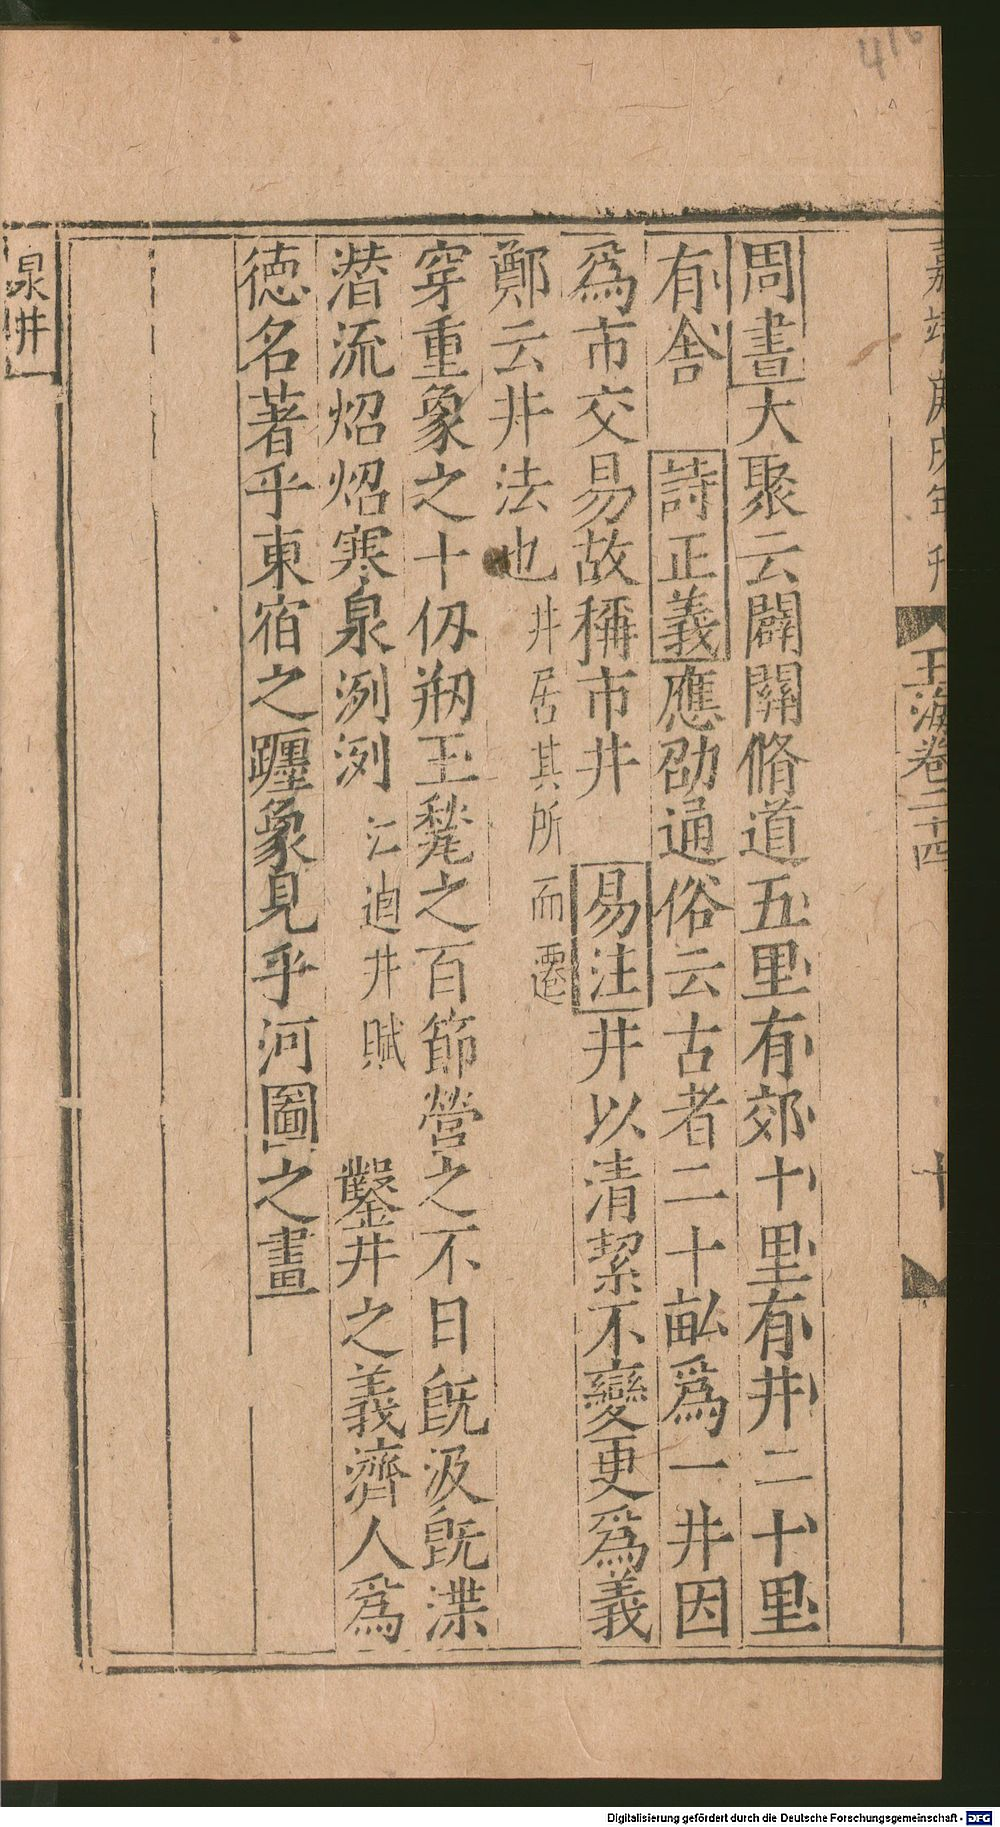 416
嘉靖庚戌年刊
玉海卷二十四
十
周書大聚云闢關脩道五里有郊十里有井二十里
有舍　詩正義應劭通俗云古者二十畝爲一井因
爲市交易故稱市井　易注井以清絜不變更爲義
鄭云井法也井居其所而遷
穿重象之十仭剏玉甃之百節營之不日旣汲旣渫
潛流炤炤寒泉洌洌江逌井賦　鑿井之義濟人爲
德名著乎東宿之躔象見乎河圖之畫
泉井
Digitalisierung gefördert durch die Deutsche Forschungsgemeinschaft - DFG